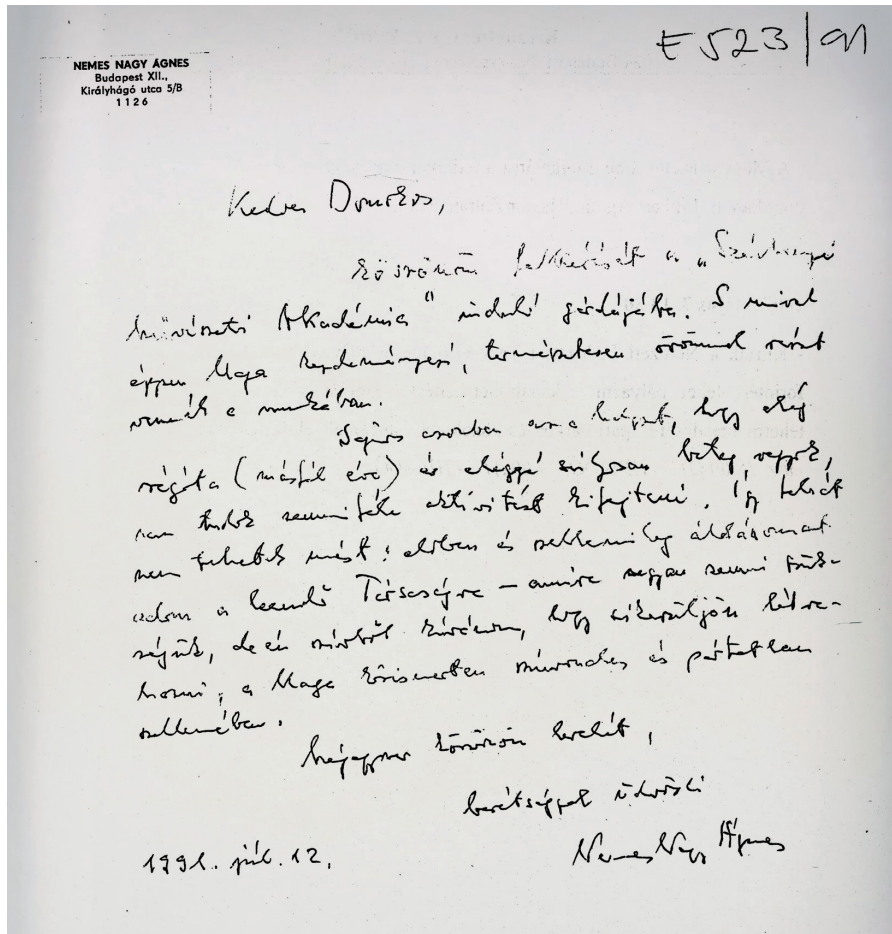 E 523/91
NEMES NAGY ÁGNES
Budapest XII.,
Királyhágó utca 5/B
1126
Kedves Domokos,
köszönöm felkérését a „Széchenyi
Művészeti Akadémia" induló gárdájába. S mivel
éppen Maga kezdeményezi, természetesen örömmel részt
vennék a munkában.
Sajnos azonban az a helyzet, hogy elég
régóta (másfél éve) és eléggé súlyosan beteg vagyok,
nem tudok semmiféle aktivitást kifejteni. Így tehát
nem tehetek mást: elvben és szellemileg áldásomat
adom a leendő Társaságra – amire ugyan semmi szük-
ségük, de én szívből kívánom, hogy sikerüljön létre-
hozni, a Maga közismerten színvonalas és pártatlan
szellemében.
Mégegyszer köszönöm levelét,
barátsággal üdvözli
Nemes Nagy Ágnes
1991. júl. 12.